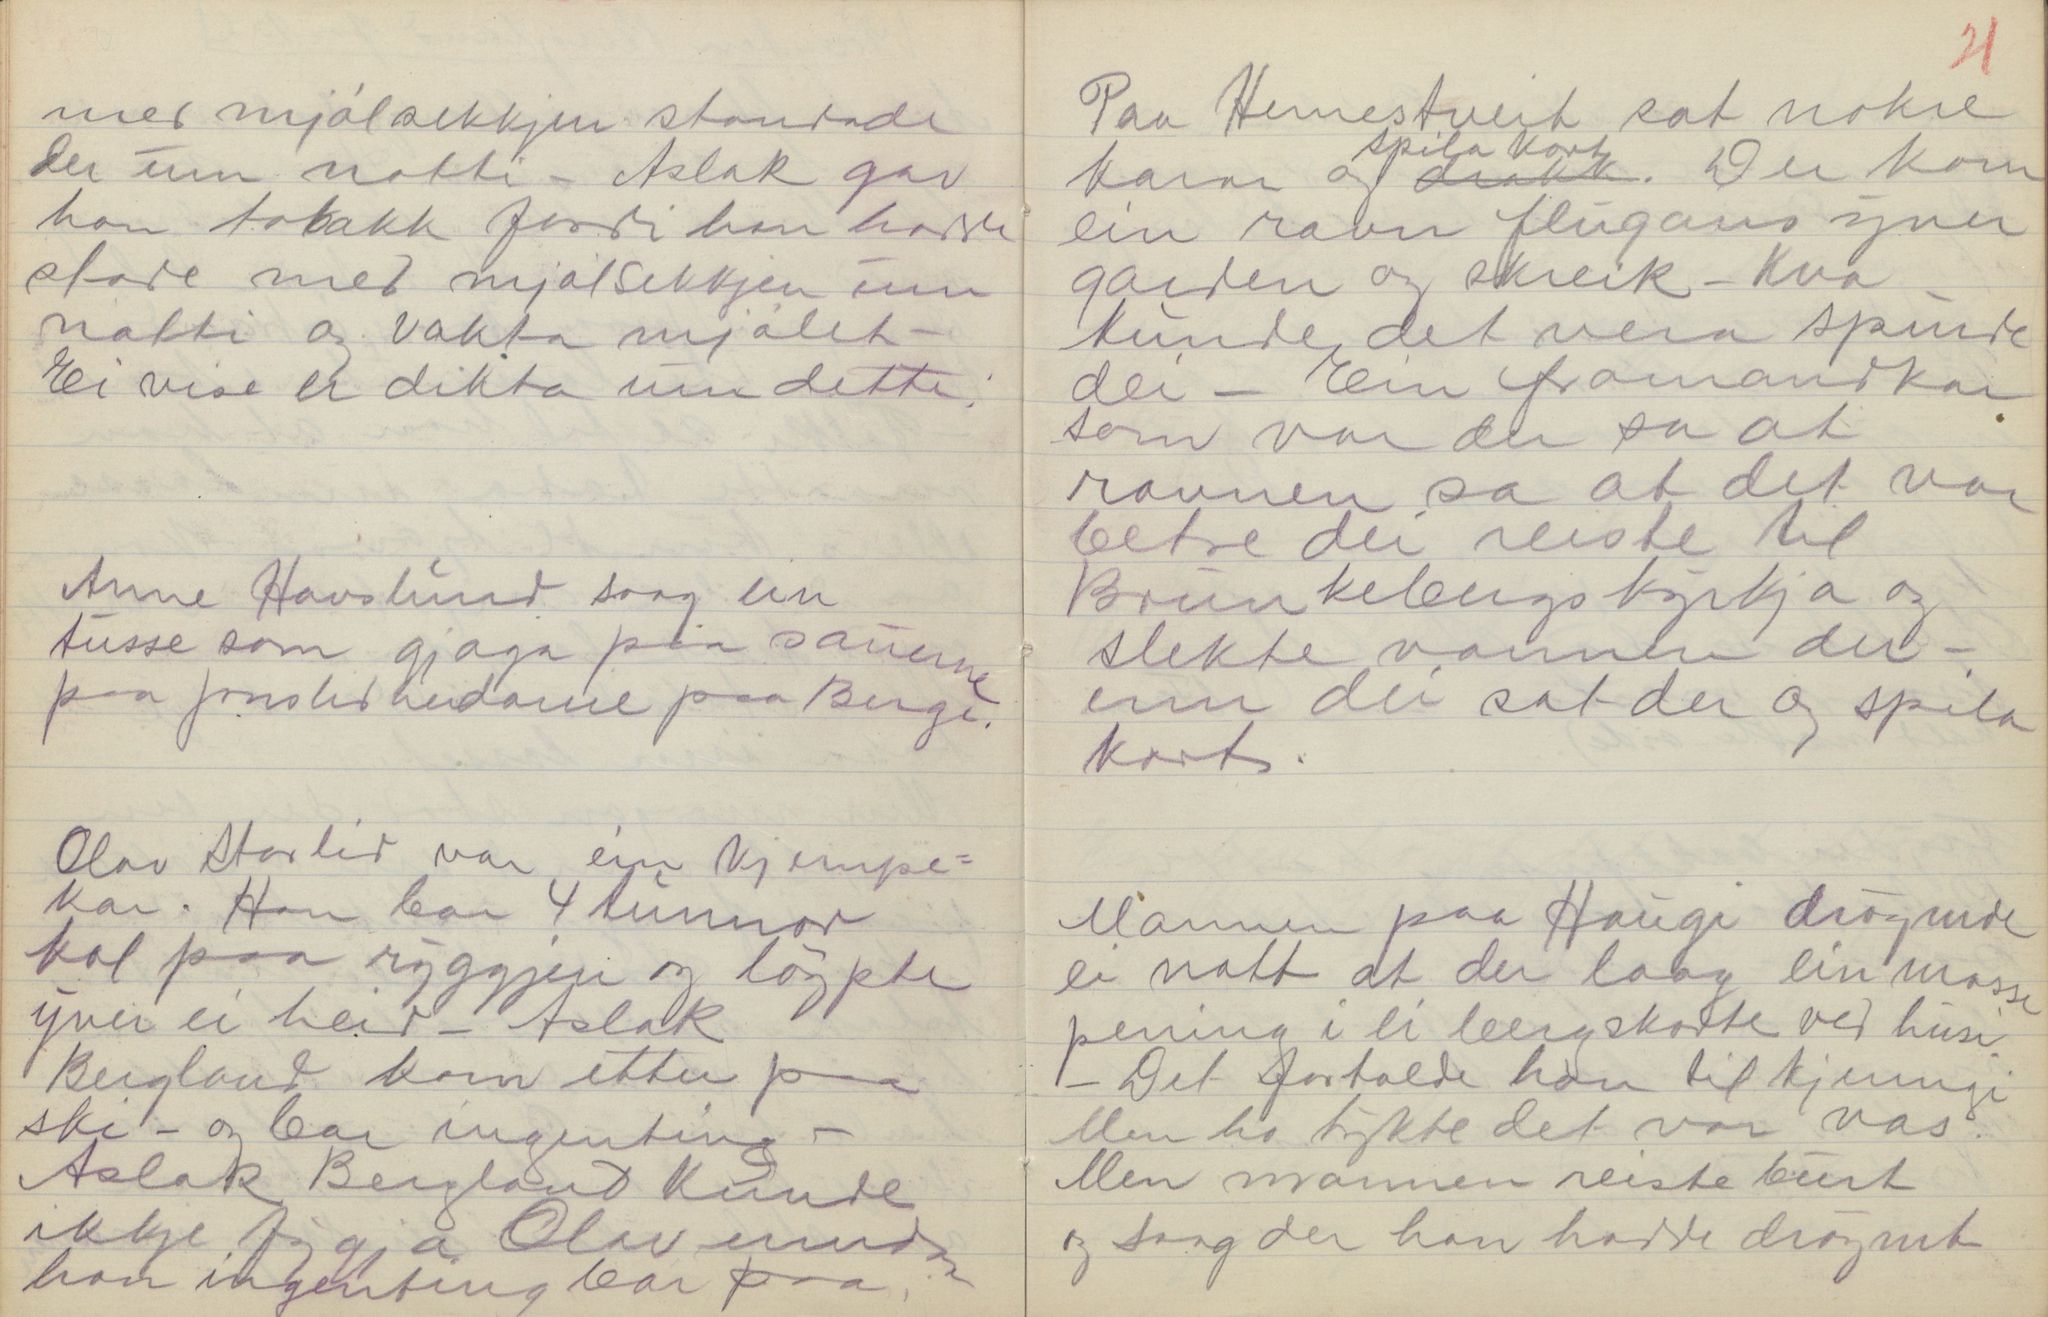 med mjølsekkjen standade
der um natti - Aslak gav
han tobakk fordi han hadde
stade med mjølsekkjen um
natti og vakta mjølet -
Ei vise er dikta um dette.
Anne Havslund saag ein
tusse som gjaga paa sauerne
paa paa Bergi.
Olav Storlid var ein kjempe=
kar. Han bar 4 tunnor
kol paa ryggjen og löypte
yver ei heid - Aslak
Bergland kom etter paa
ski - og bar ingenting -
Aslak Bergland kunde
ikkje fygja Olav enndaa
han ingenting bar paa.
21
Paa Hemestveit sat nokre
spila kort
karar og drakk. Der kom
ein ravn flugans yver
garden og skreik - Kva
kunde det vera spurde
dei - Ein framandkar
som var der sa at
ravnen sa at det var
betre dei reiste til
Brunkebergs kyrkja og
slekte vannen der -
enn dei sat der og spila
kort.
Mannen paa Haugi dröymde
ei natt at der laag ein masse
pening i ei bergskorte ved husi
- Det fortalde han til kjerringi
Men ho tykte det var vas.
Men mannen reiste burt
og saag der han hadde dröymt